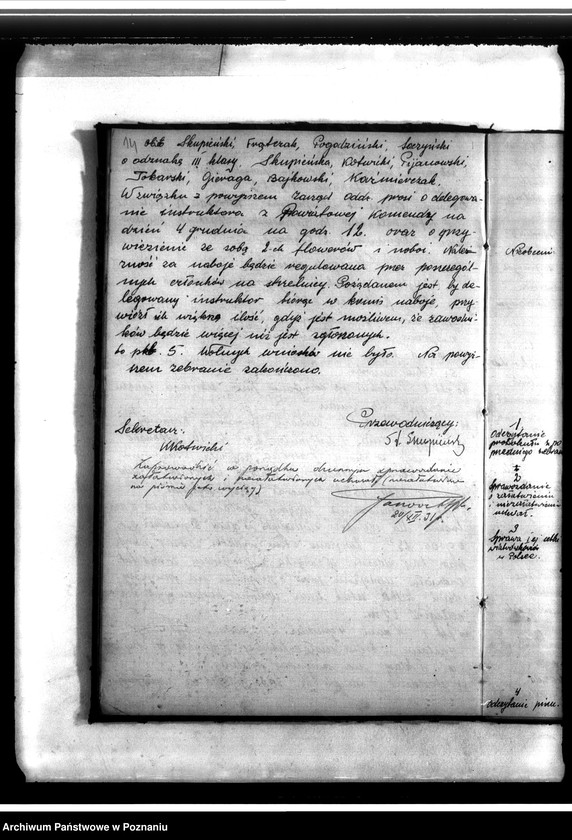 ob. Skupieński, Frątczak, Pogodziński, Seczyński
o odznakę III klasy, Skupieńska, Kotwicki, Pijanowski,
Tobarski, Gieraga, Bajkowski, Kaźmierczak.
W związku z powyższem Zarząd Oddz. prosi o delegowa-
nie instruktora z Powiatowej Komendy na
dzień 4 grudnia na godz. 12. oraz o przy-
wiezienie ze sobą 2-ch flowerów i naboi. Należ-
ność za naboje będzie regulowana przez poszczegól-
nych członków na strzelnicy. Pożądanem jest by de-
legowany instruktor biorąc w komis naboje, przy-
wiózł ich większą ilość, gdyż jest możliwem, że zawodni-
ków będzie więcej niż jest zgłoszonych.
to pkt. 5. Wolnych wniosków nie było. Na powyż-
szem zebranie zakończono.
Przewodniczący:
Sekretarz:
Zaprowadzić w porządku obrad sprawozdanie
załatwionych i niezałatwionych uchwał (niezałatwione
na piśmie jako wyciąg)
Nieobecni
1
Odczytanie
protokułu z po
przedniego zebrania
2
Sprawozdanie
o załatwieniu
i niezałatwieniu
uchwał.
3
Sprawa i cele
w Polsce.
4
Odczytanie pism.
Archiwum Państwowe w Poznaniu